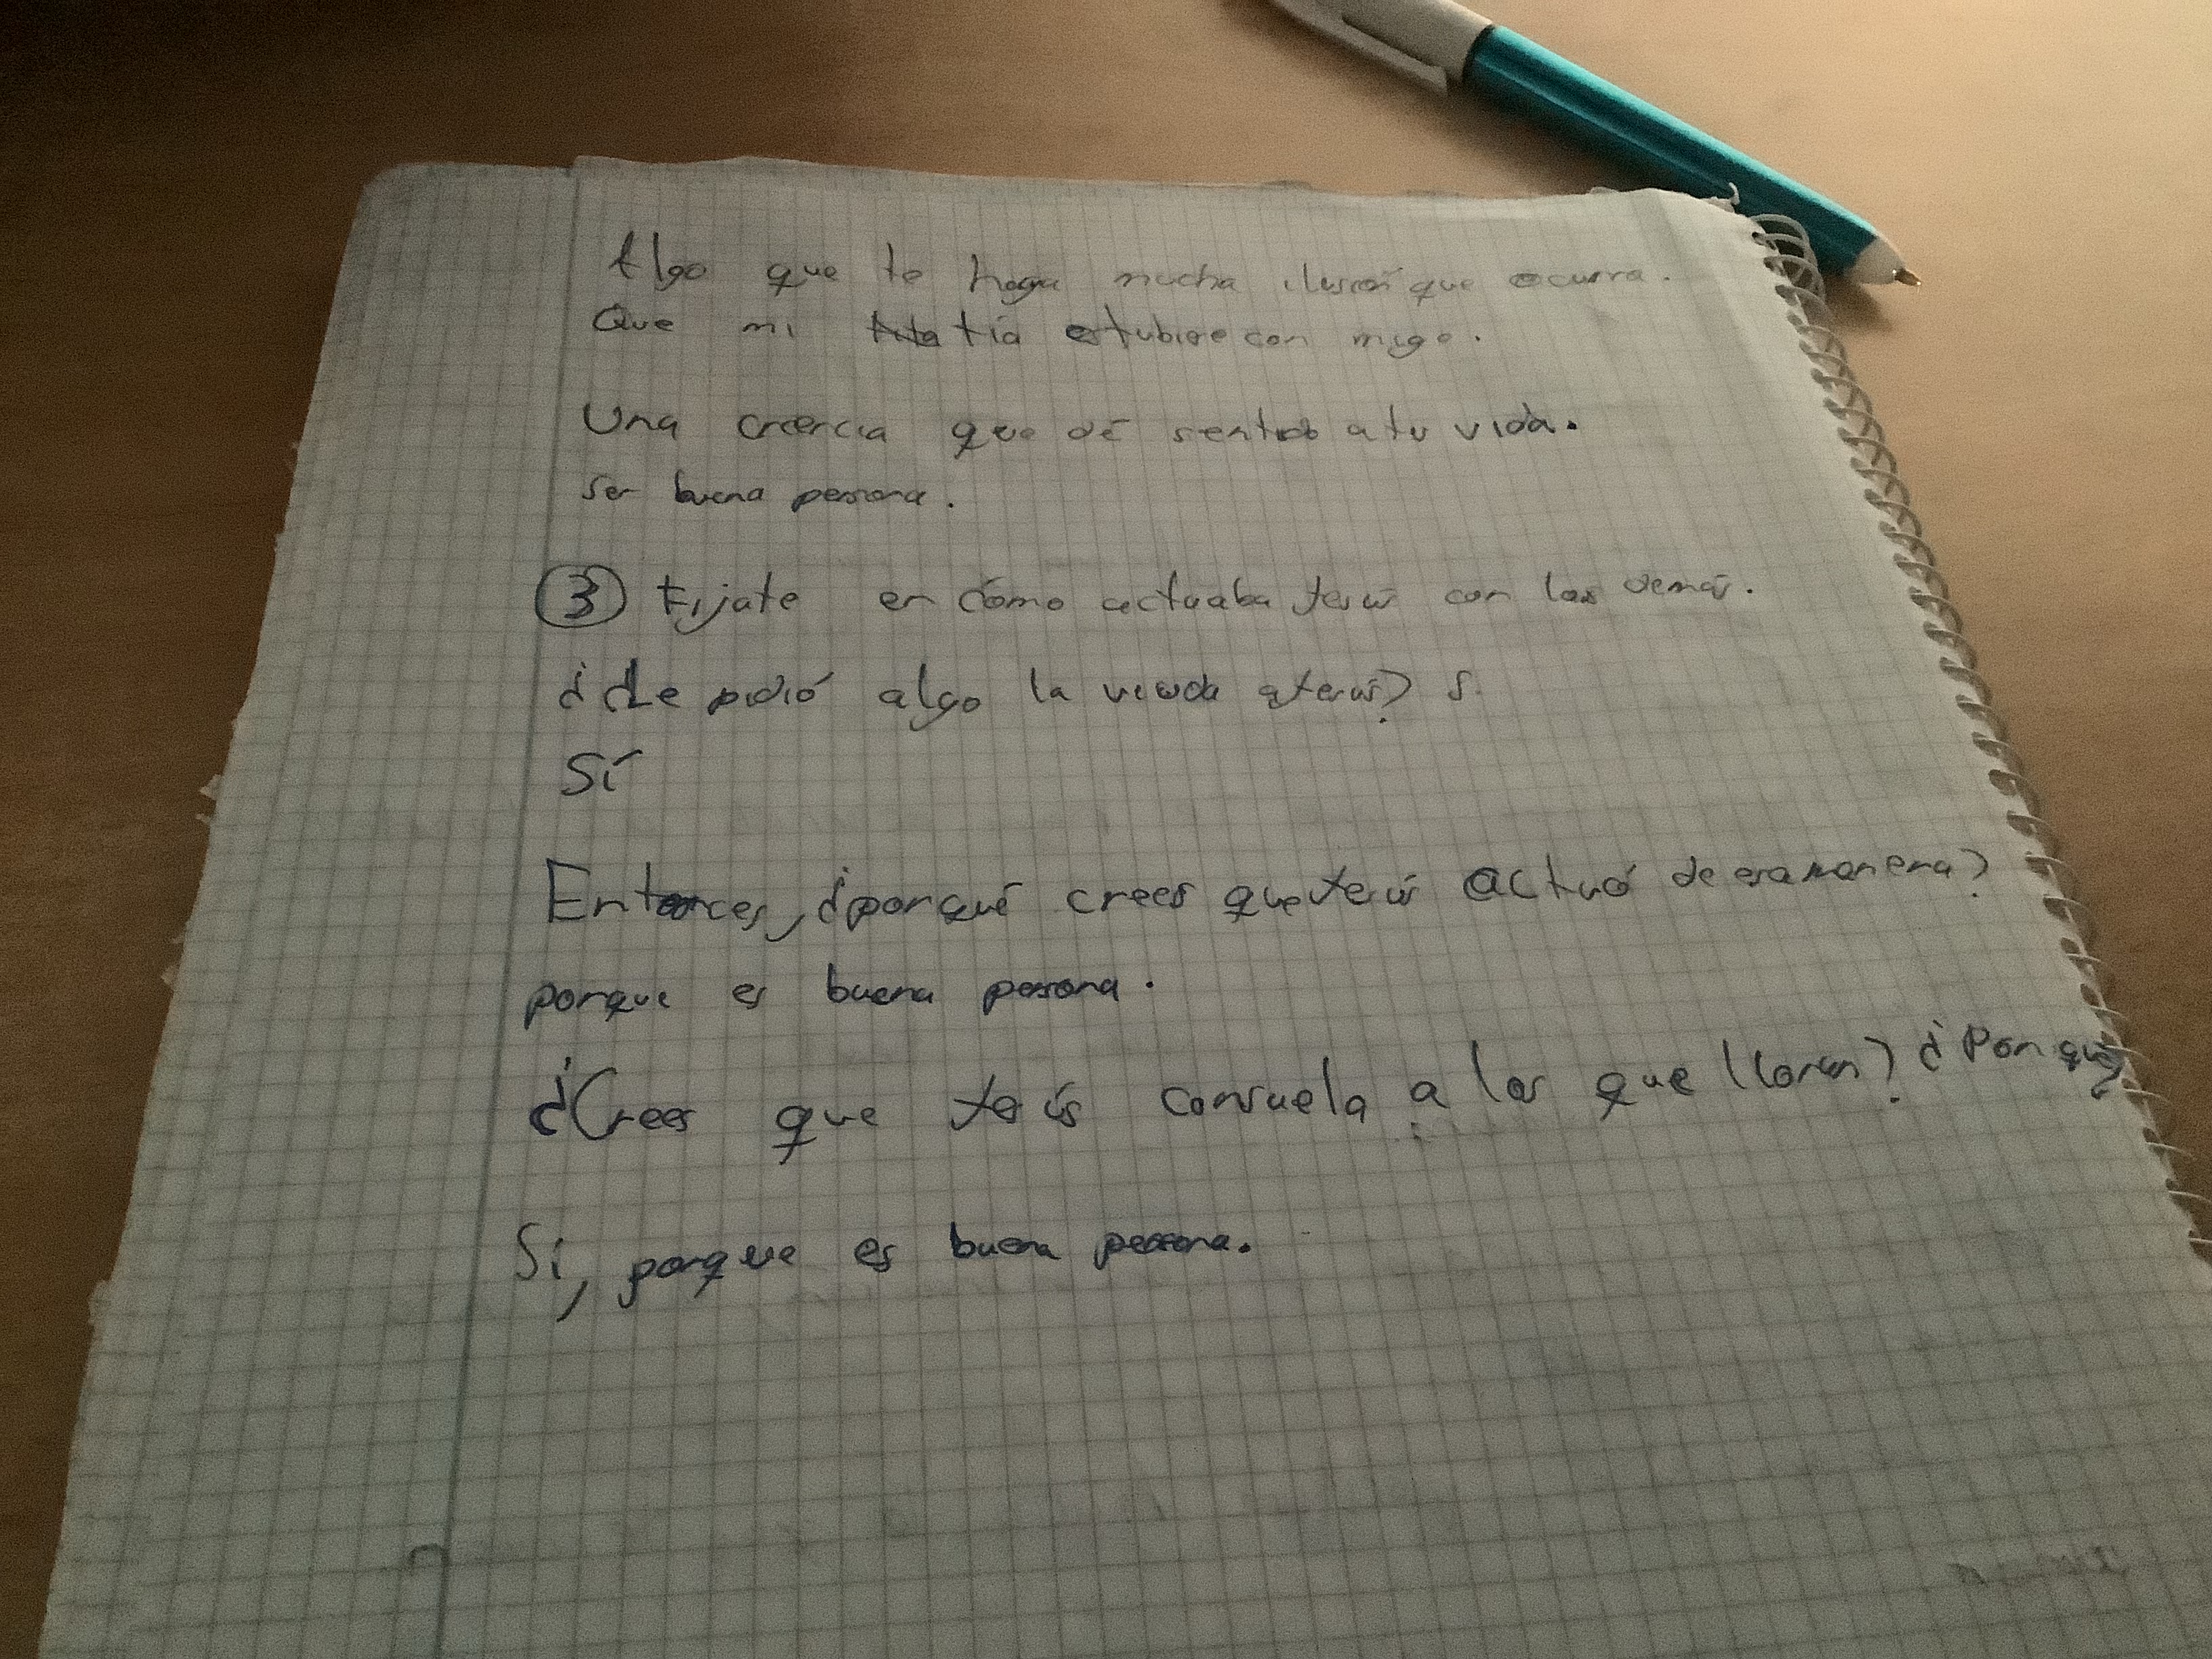 Algo que te haga mucha ilusión que ocurra.
Que mi tía estubiese con migo.
Una creencia que dé sentido a tu vida.
Ser buena persona.
3 Fijate en cómo actuaba Jesús con los demás.
¿Le pidió algo la viuda a Jesús? S
Sí
Entonces, ¿porqué crees que Jesús actuó de esa manera?
porque es buena persona.
¿Crees que Jesús consuela a los que lloran? ¿Por qué?
Sí, porque es buena persona.